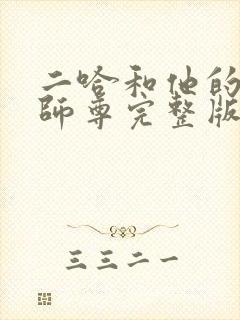 二哈和他的
師尊完整版
三三二一